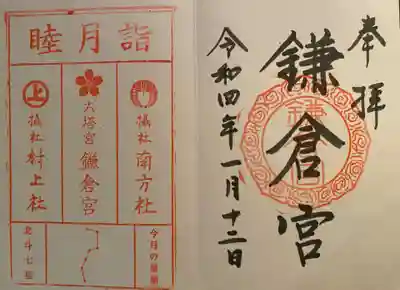 奉拝
鎌倉宮
令和四年一月十二日
睦月詣
摂社 南方社
大塔宮 鎌倉宮
上
摂社 村上社
今月の星宿
北斗七星